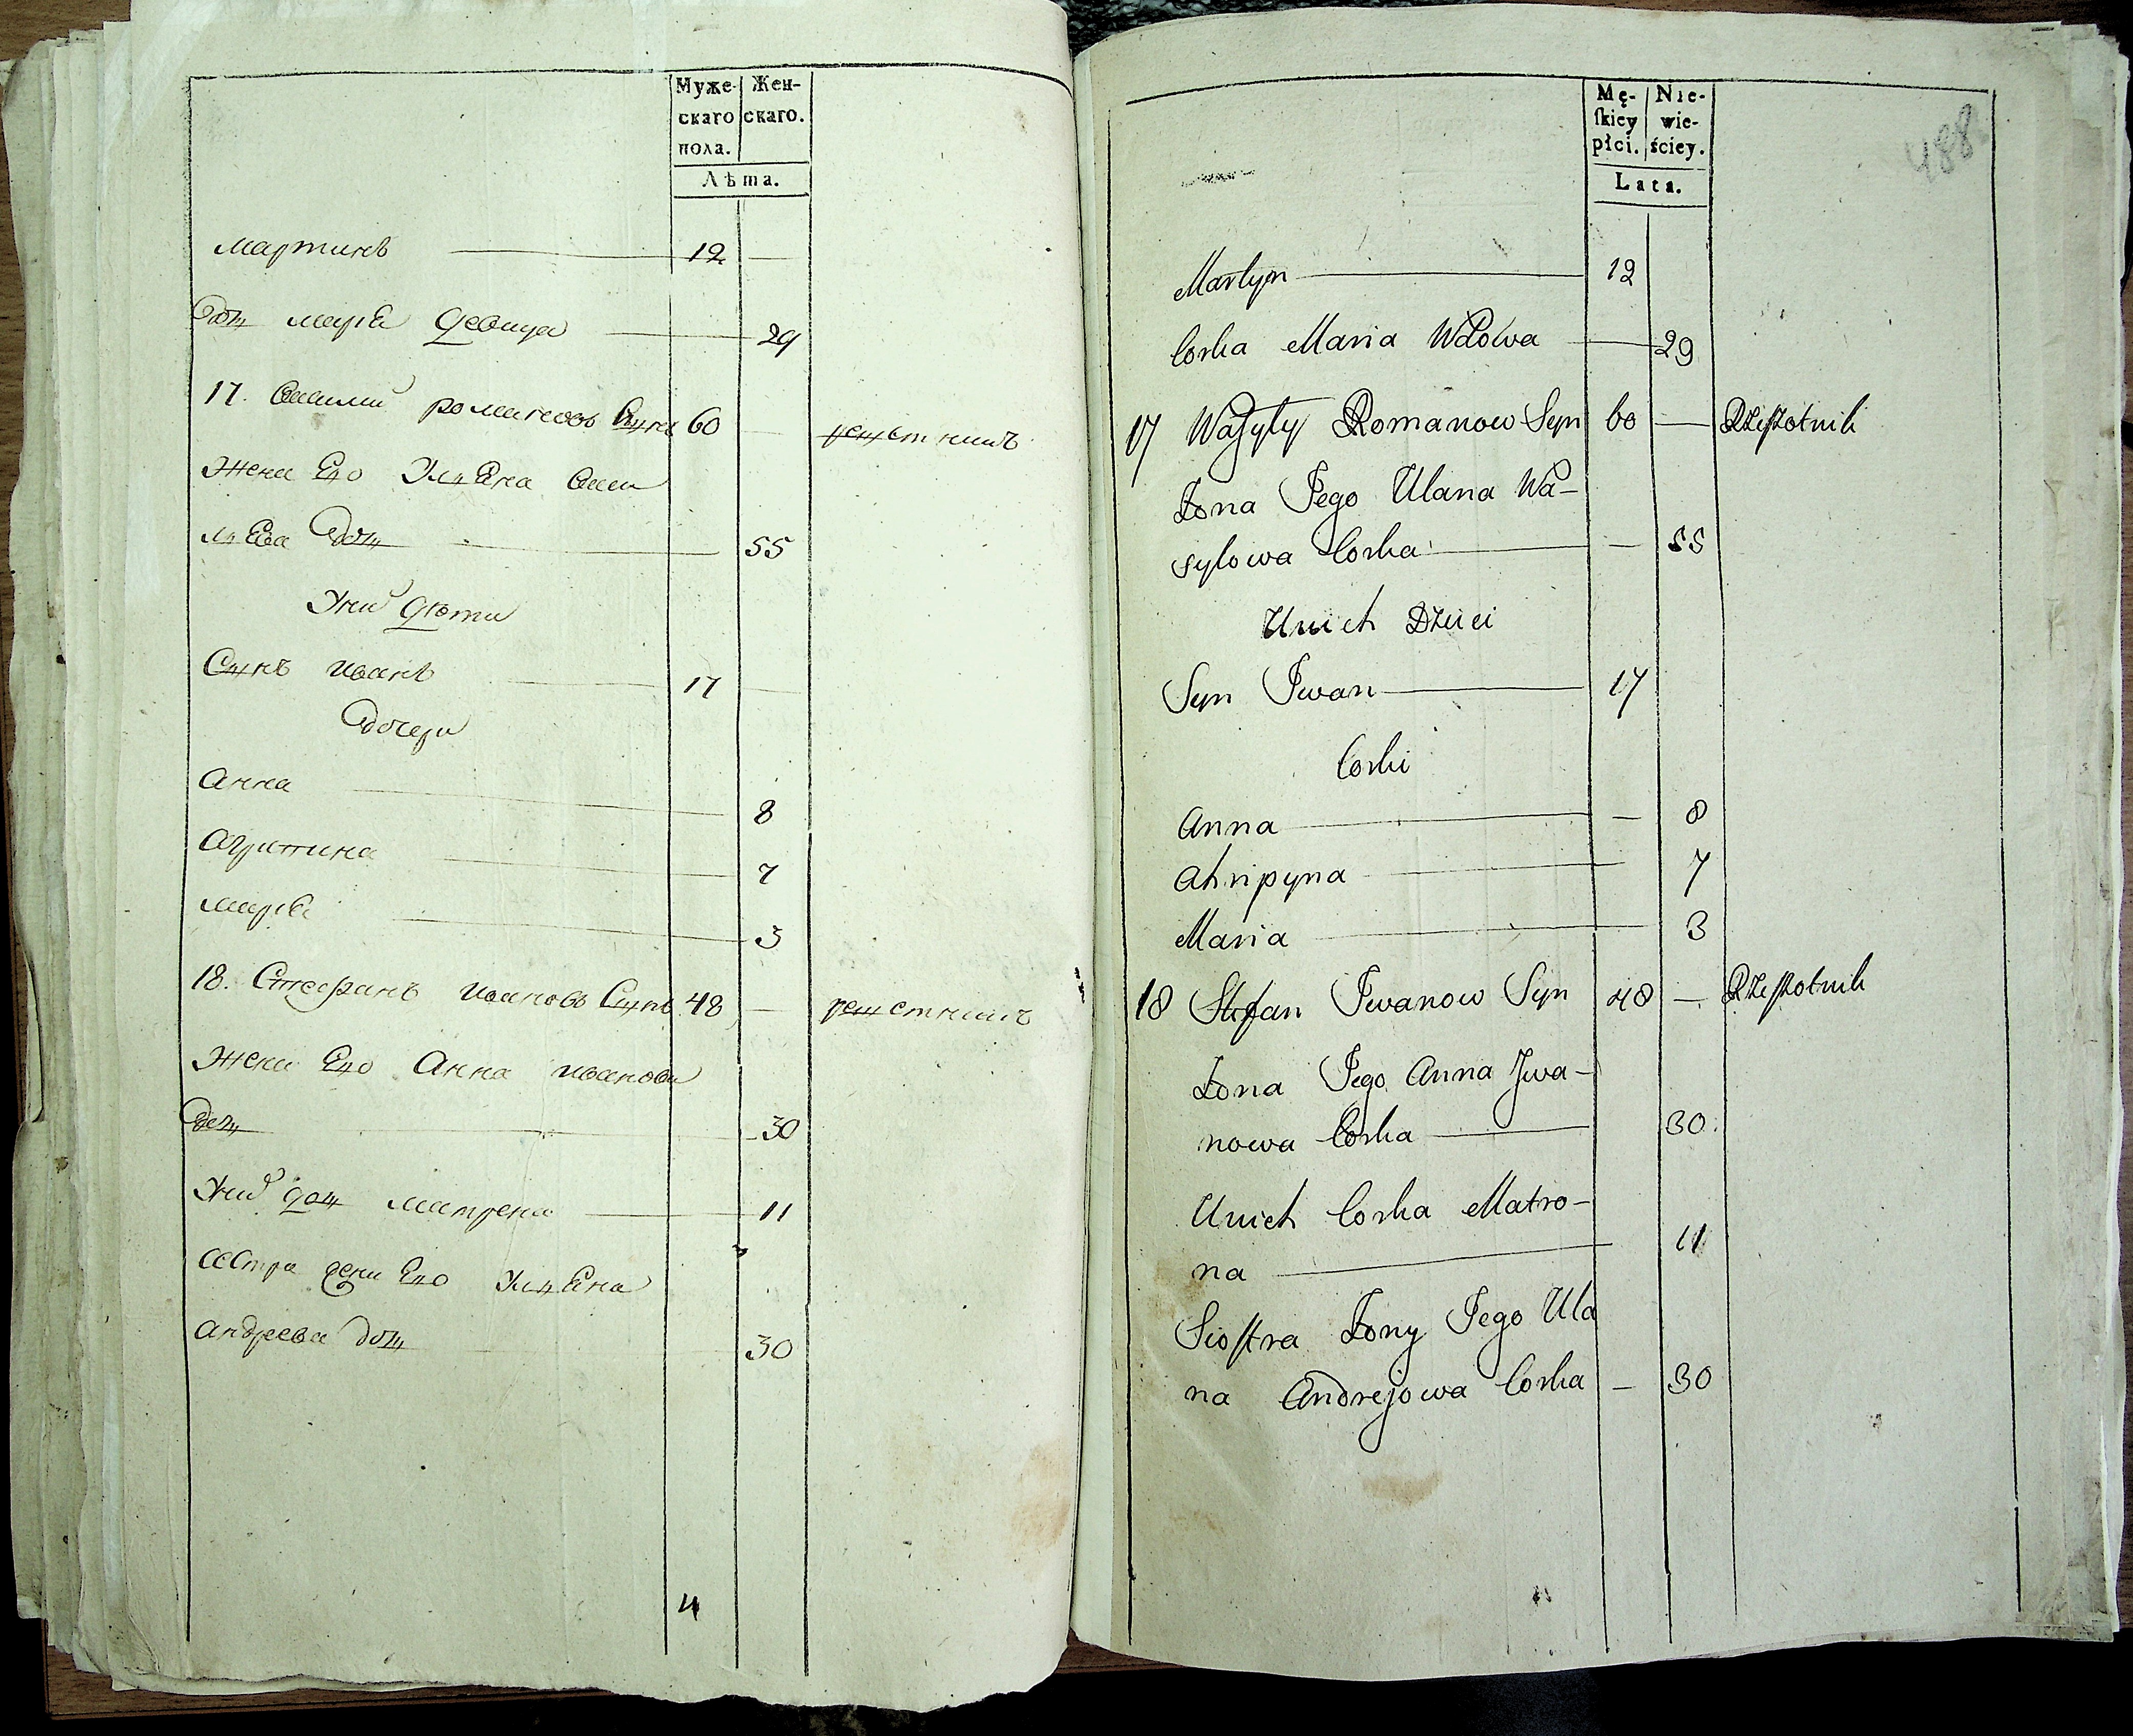 Муже-
скаго
пола.
Жен-
скаго.
Лѣта.
Мартинъ 12 —
дощ Маря 29
17. Романовъ Сынъ 60 —
Жена Его Улляна Васи
лева дощ 55
У них дѣти
Сынъ Иванъ 17 —
дочери
Анна 8
Агрипина 7
Маря 3
18. Стефанъ Ивановъ Сынъ 48 —
Жена Его Анна Иванова
дощ 30
У них дощ Матрена 11
Сестра жены Его Улляна
Андреева дощ 30
4
488
Mę-
ſkiey
płci.
Nie-
wie-
ściey.
Lata.
Martyn 12
Corka Maria Wdowa 29
17 Romanow Syn 60 — Rzeszotnik
Żona Jego Ulana Wa-
sylowa Corka — 55
Unich Dzieci
Syn Jwan 17
Corki
Anna — 8
Ahripyna 7
Maria 3
18 Stefan Jwanow Syn 48 — Rzeszotnik
Żona Jego Anna Jwa-
nowa Corka 30
Unich Corka Matro-
na 11
Siostra Żony Jego Ula
na Andrejowa Corka — 30